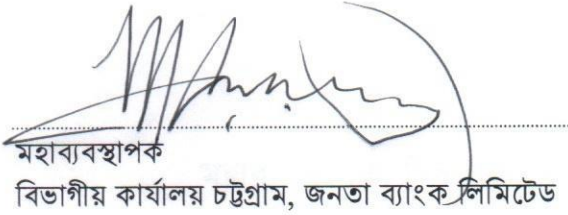 মহাব্যবস্থাপক
বিভাগীয় কার্যালয় চট্টগ্রাম, জনতা ব্যাংক লিমিটেড